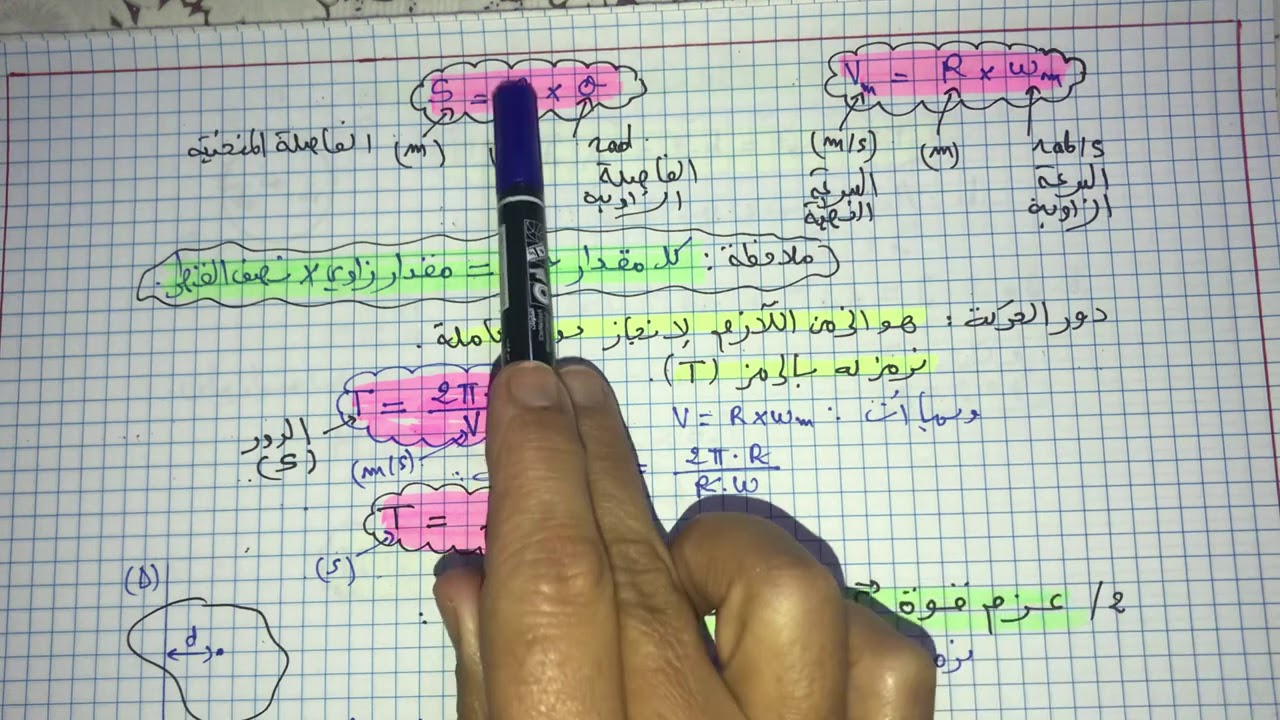 S = × θ
V_m = R × ω_m
الفاصلة المنحنية (m) rad (m/s) (m) rab/s
الفاصلة الزاوية
السرعة الخطية
السرعة الزاوية
ملاحظة : كل مقدار = مقدار زاوي × نصف القطر
دور الحركة : هو الزمن اللازم لإنجاز كاملة .
نرمز له بالرمز (T).
T = 2π / V
الدور (s)
(m/s)
وبما أن : V = R×ω_m
= 2π·R / R·ω
T =
(s)
(Δ)
d
2/ عزم قوة